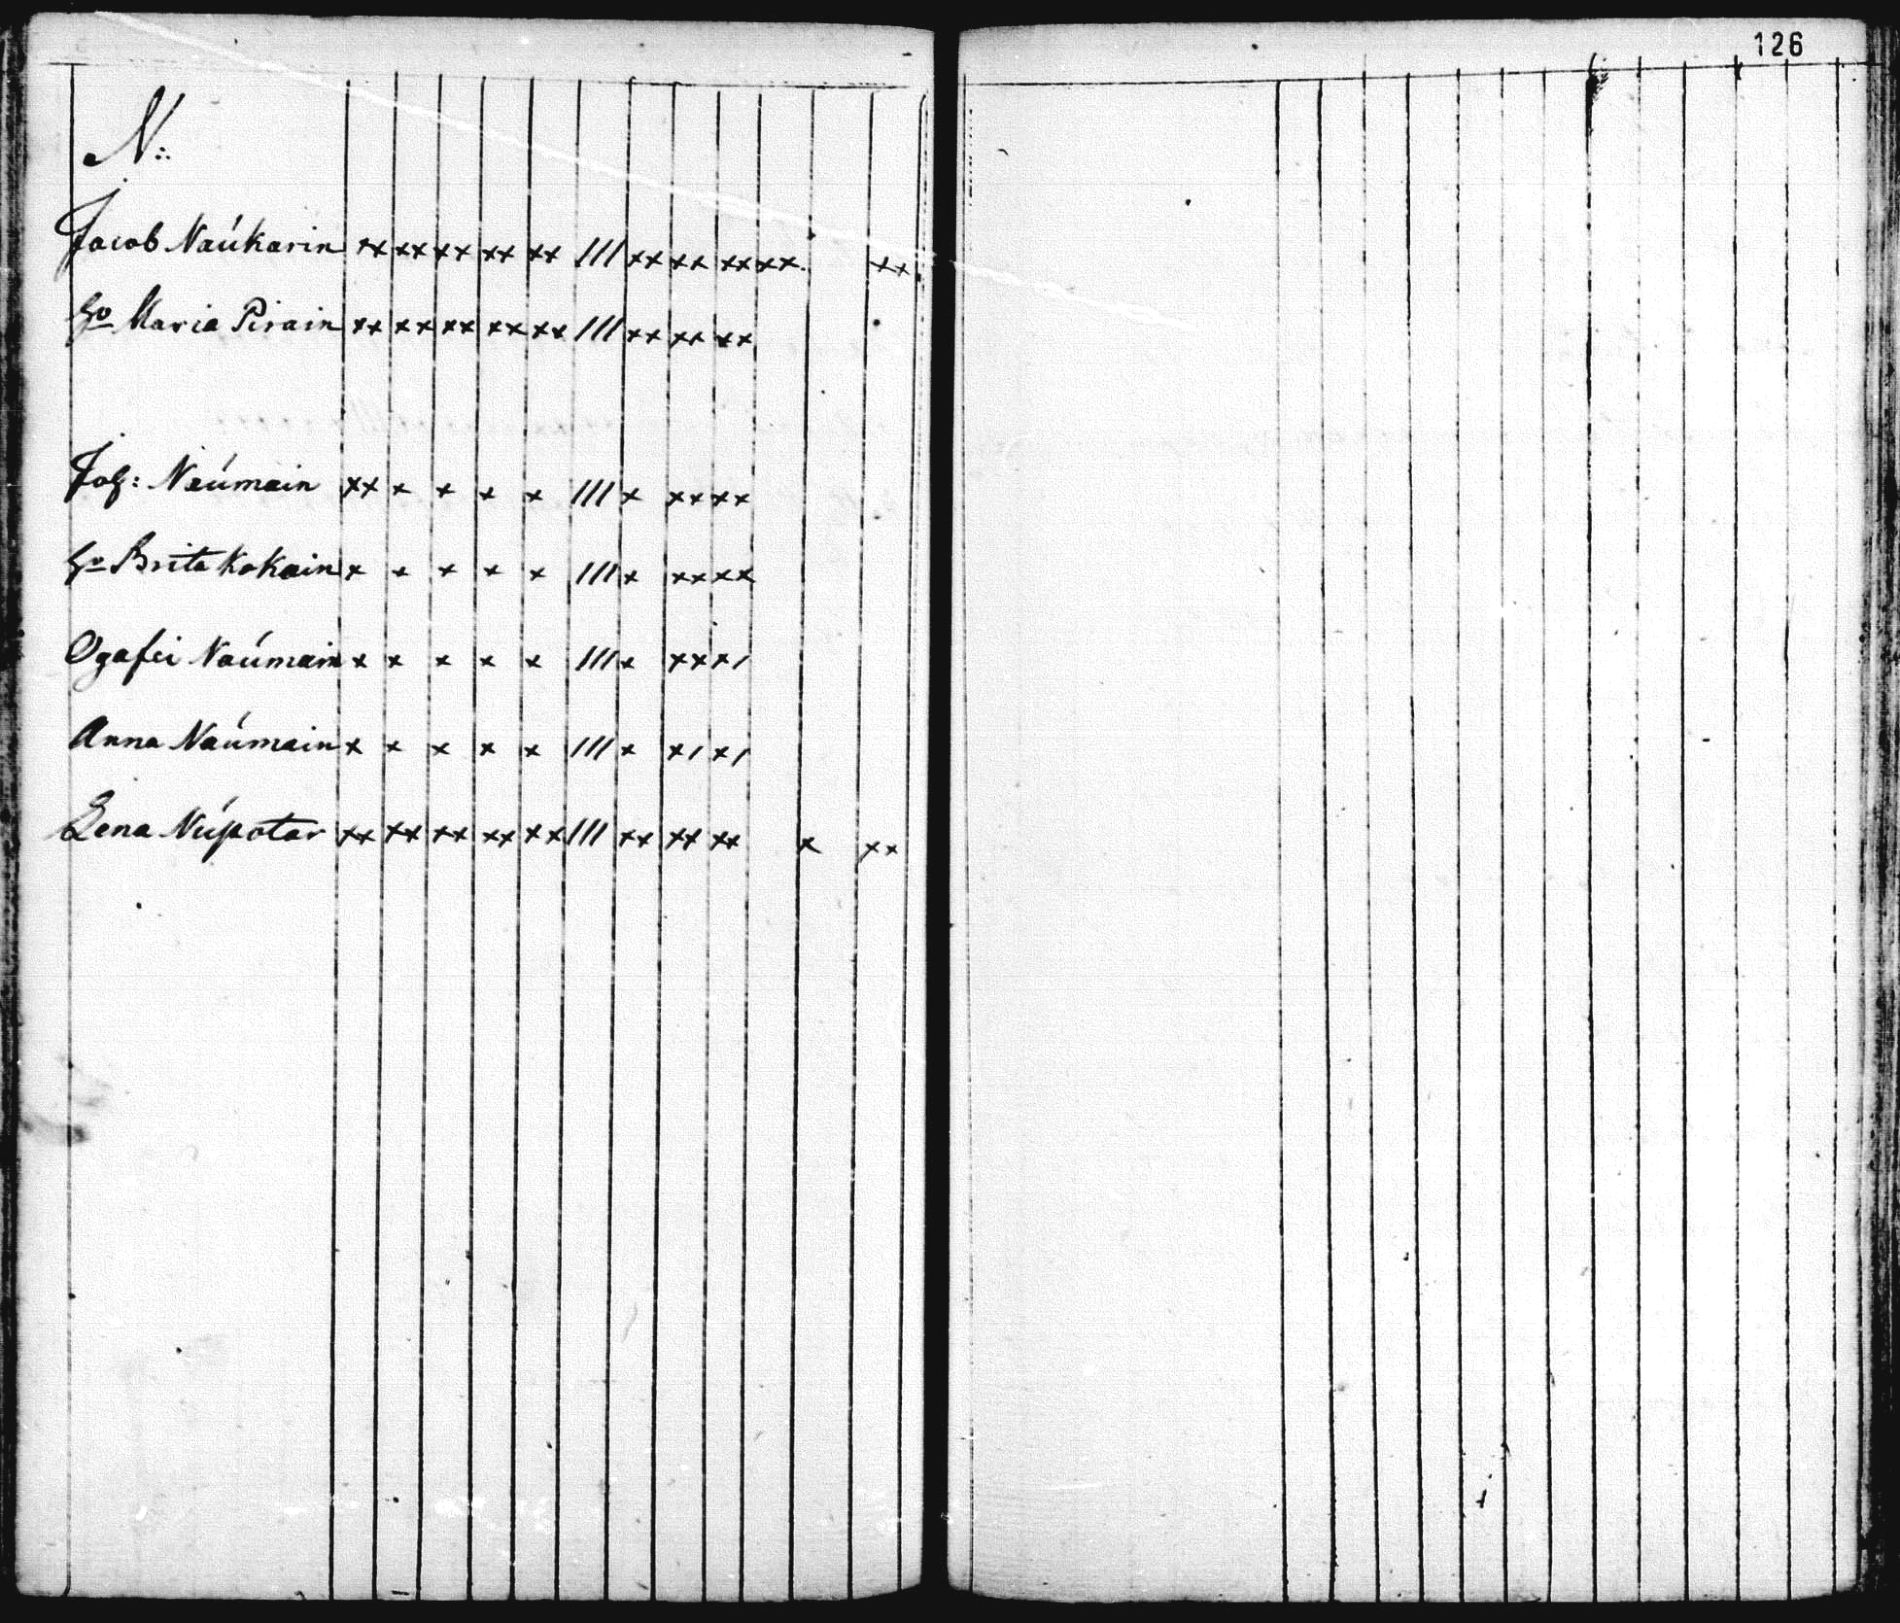 126
N:
Jacob Naúkarin xx xx xx xx xx /// xx xx xx xx xx
Ho Maria Pirain xx xx xx xx xx /// xx xx xx
Joh: Naúmain xx x x x x /// x xx xx
Ho Brita Kokain x x x x x /// x xx xx
Ogafei Naúmain x x x x x /// x xx x/
Anna Naúmain x x x x x /// x x/ x/
Lena Núpotar xx xx xx xx xx /// xx xx xx x xx